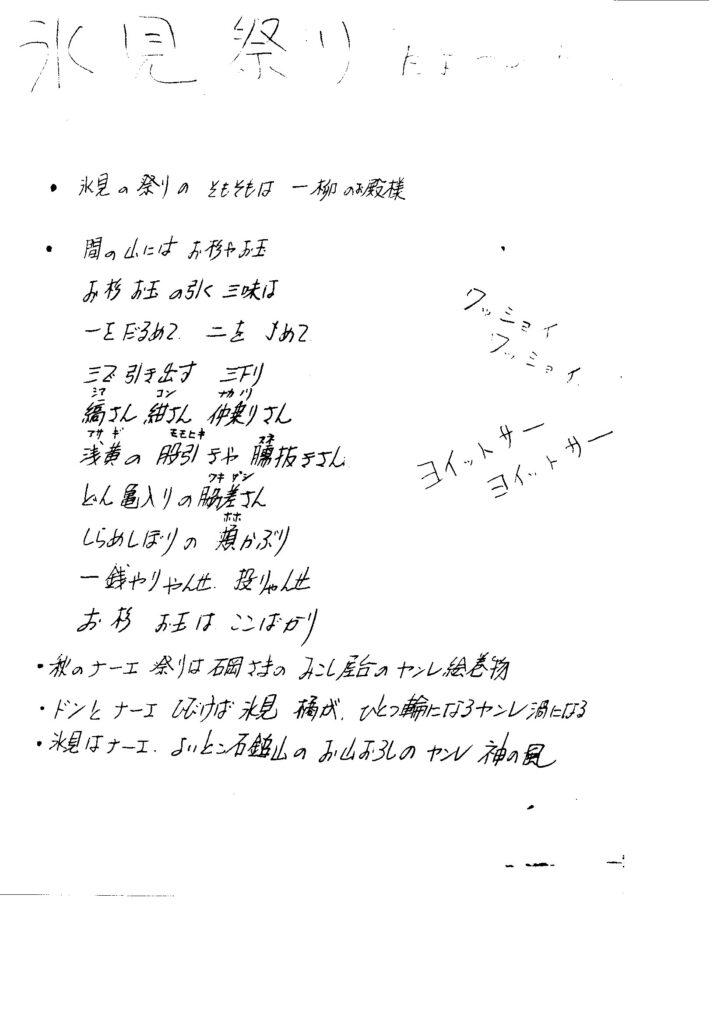 氷見祭り
・ 氷見の祭りの そもそもは 一柳のお殿様
・ 間の山には お杉やお玉
お杉 お玉 の引く 三味は
一を だるめて 二を 〆めて
三で 引き出す 三下り
シマ コン ナカノリ
縞さん 紺さん 仲乗りさん
アサギ モモヒキ スネ
浅黄の 股引
どん亀入りの脇差さん
ホホ
しらめしぼりの 頬かぶり
一銭やりゃんせ 投りゃんせ
お杉 お玉は ここばかり
ワッショイ
ワッショイ
ヨイットサー
ヨイットサー
・秋のナーエ 祭りは石岡さまの みこし屋台のヤンレ絵巻物
・ドンと ナーエ ひびけば 氷見 橘が、ひとつ輪になるヤンレ渦になる
・氷見はナーエ よいとこ石鎚山の お山おろしの ヤンレ 神の風